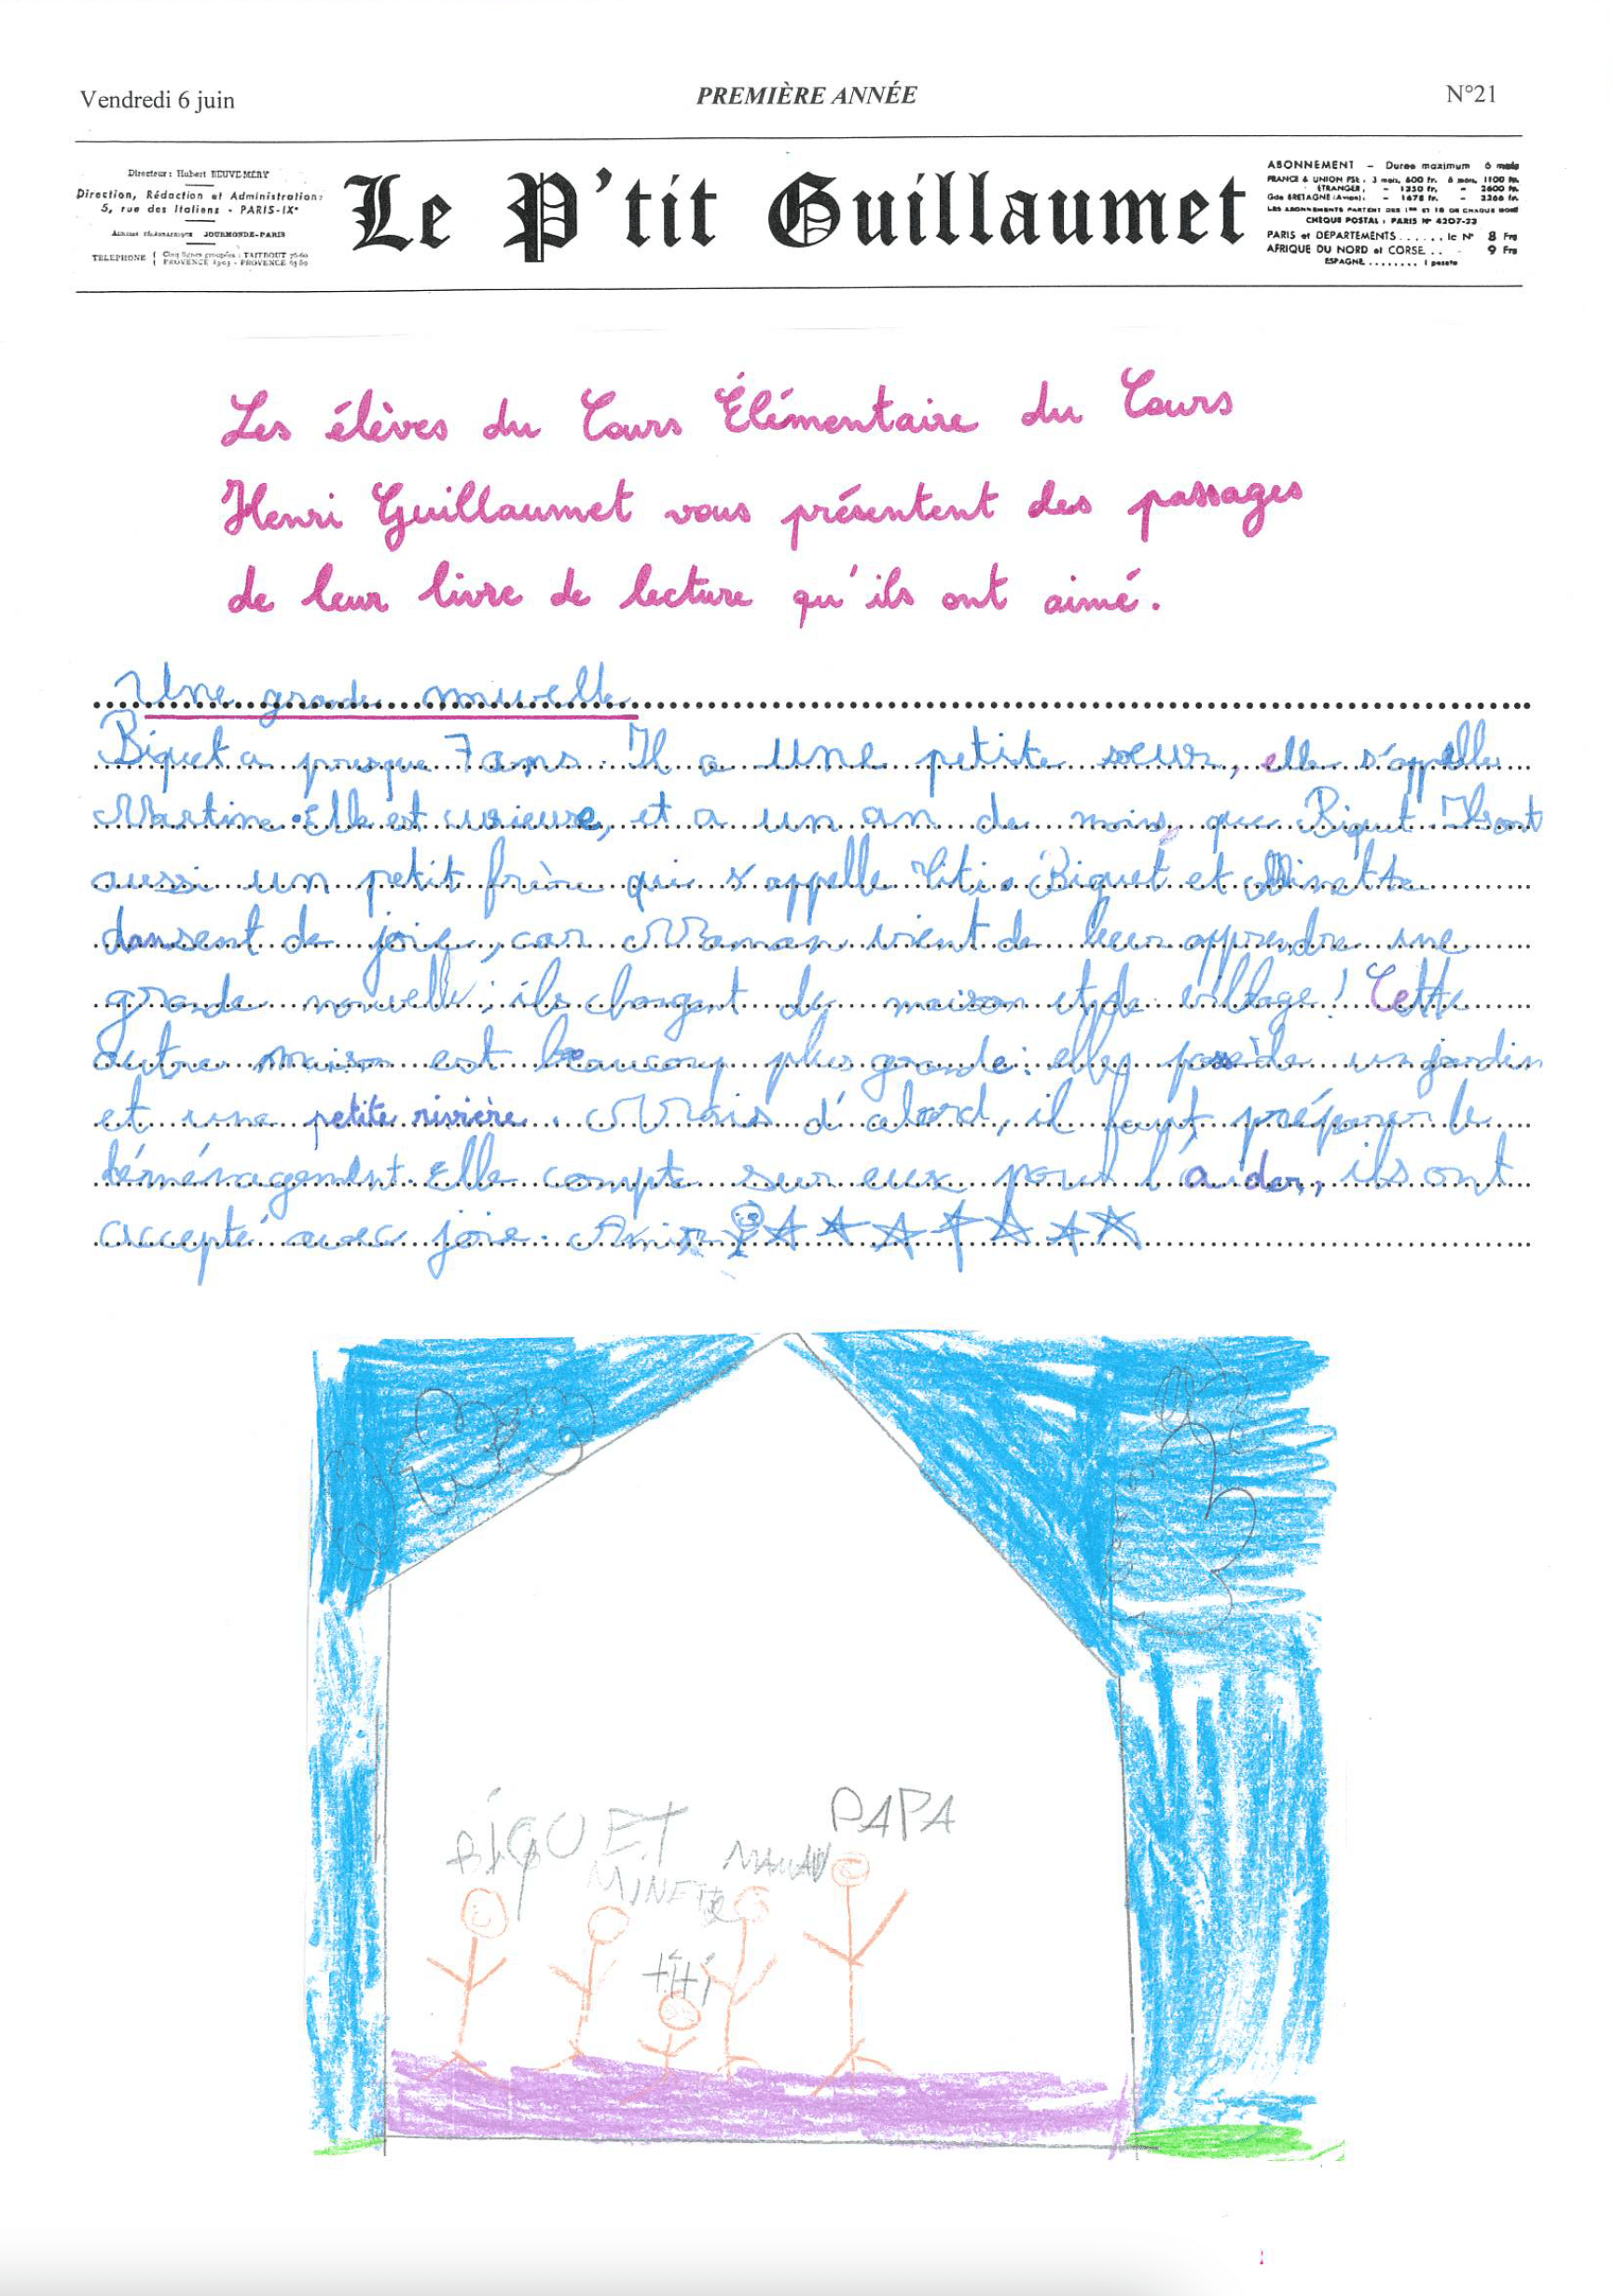 Vendredi 6 juin
PREMIÈRE ANNÉE
N°21
Directeur : Hubert BEUVE-MÉRY
Direction, Rédaction et Administration :
5, rue des Italiens - PARIS-IX°
JOURMONDE-PARIS
TELEPHONE { Cinq lignes groupées : TAITBOUT
PROVENCE - PROVENCE
Le P'tit Guillaumet
ABONNEMENT — Duree maximum 6 mois
FRANCE & UNION FSE : 3 mois, 600 fr. 6 mois, 1100 fr.
ÉTRANGER, - 1350 fr. - 2600 fr.
Gde BRETAGNE (Avion) : - 1678 fr. - 3266 fr.
LES ABONNEMENTS PARTENT DES 1er ET 16 DE CHAQUE MOIS
CHÈQUE POSTAL : PARIS N° 4207-23
PARIS et DÉPARTEMENTS ...... le N° 8 Frs
AFRIQUE DU NORD et CORSE .. - 9 Frs
ESPAGNE ........ 1 peseta
Les élèves du Cours Élémentaire du Cours
Henri Guillaumet vous présentent des passages
de leur livre de lecture qu'ils ont aimé.
Une grande nouvelle
Biquet a presque 7 ans. Il a une petite sœur, elle s'appelle
Martine. Elle est curieuse, et a un an de moins que Biquet. Ils ont
aussi un petit frère qui s'appelle Titi. Biquet et Minette
dansent de joie, car Maman vient de leur apprendre une
grande nouvelle ; ils changent de maison et de village ! Cette
autre maison est beaucoup plus grande : elle possède un jardin
et une petite rivière. Mais d'abord, il faut préparer le
déménagement. Elle compte sur eux pour l'aider, ils ont
accepté avec joie.
BIQUET
MINETTE
MAMAN
PAPA
tIti